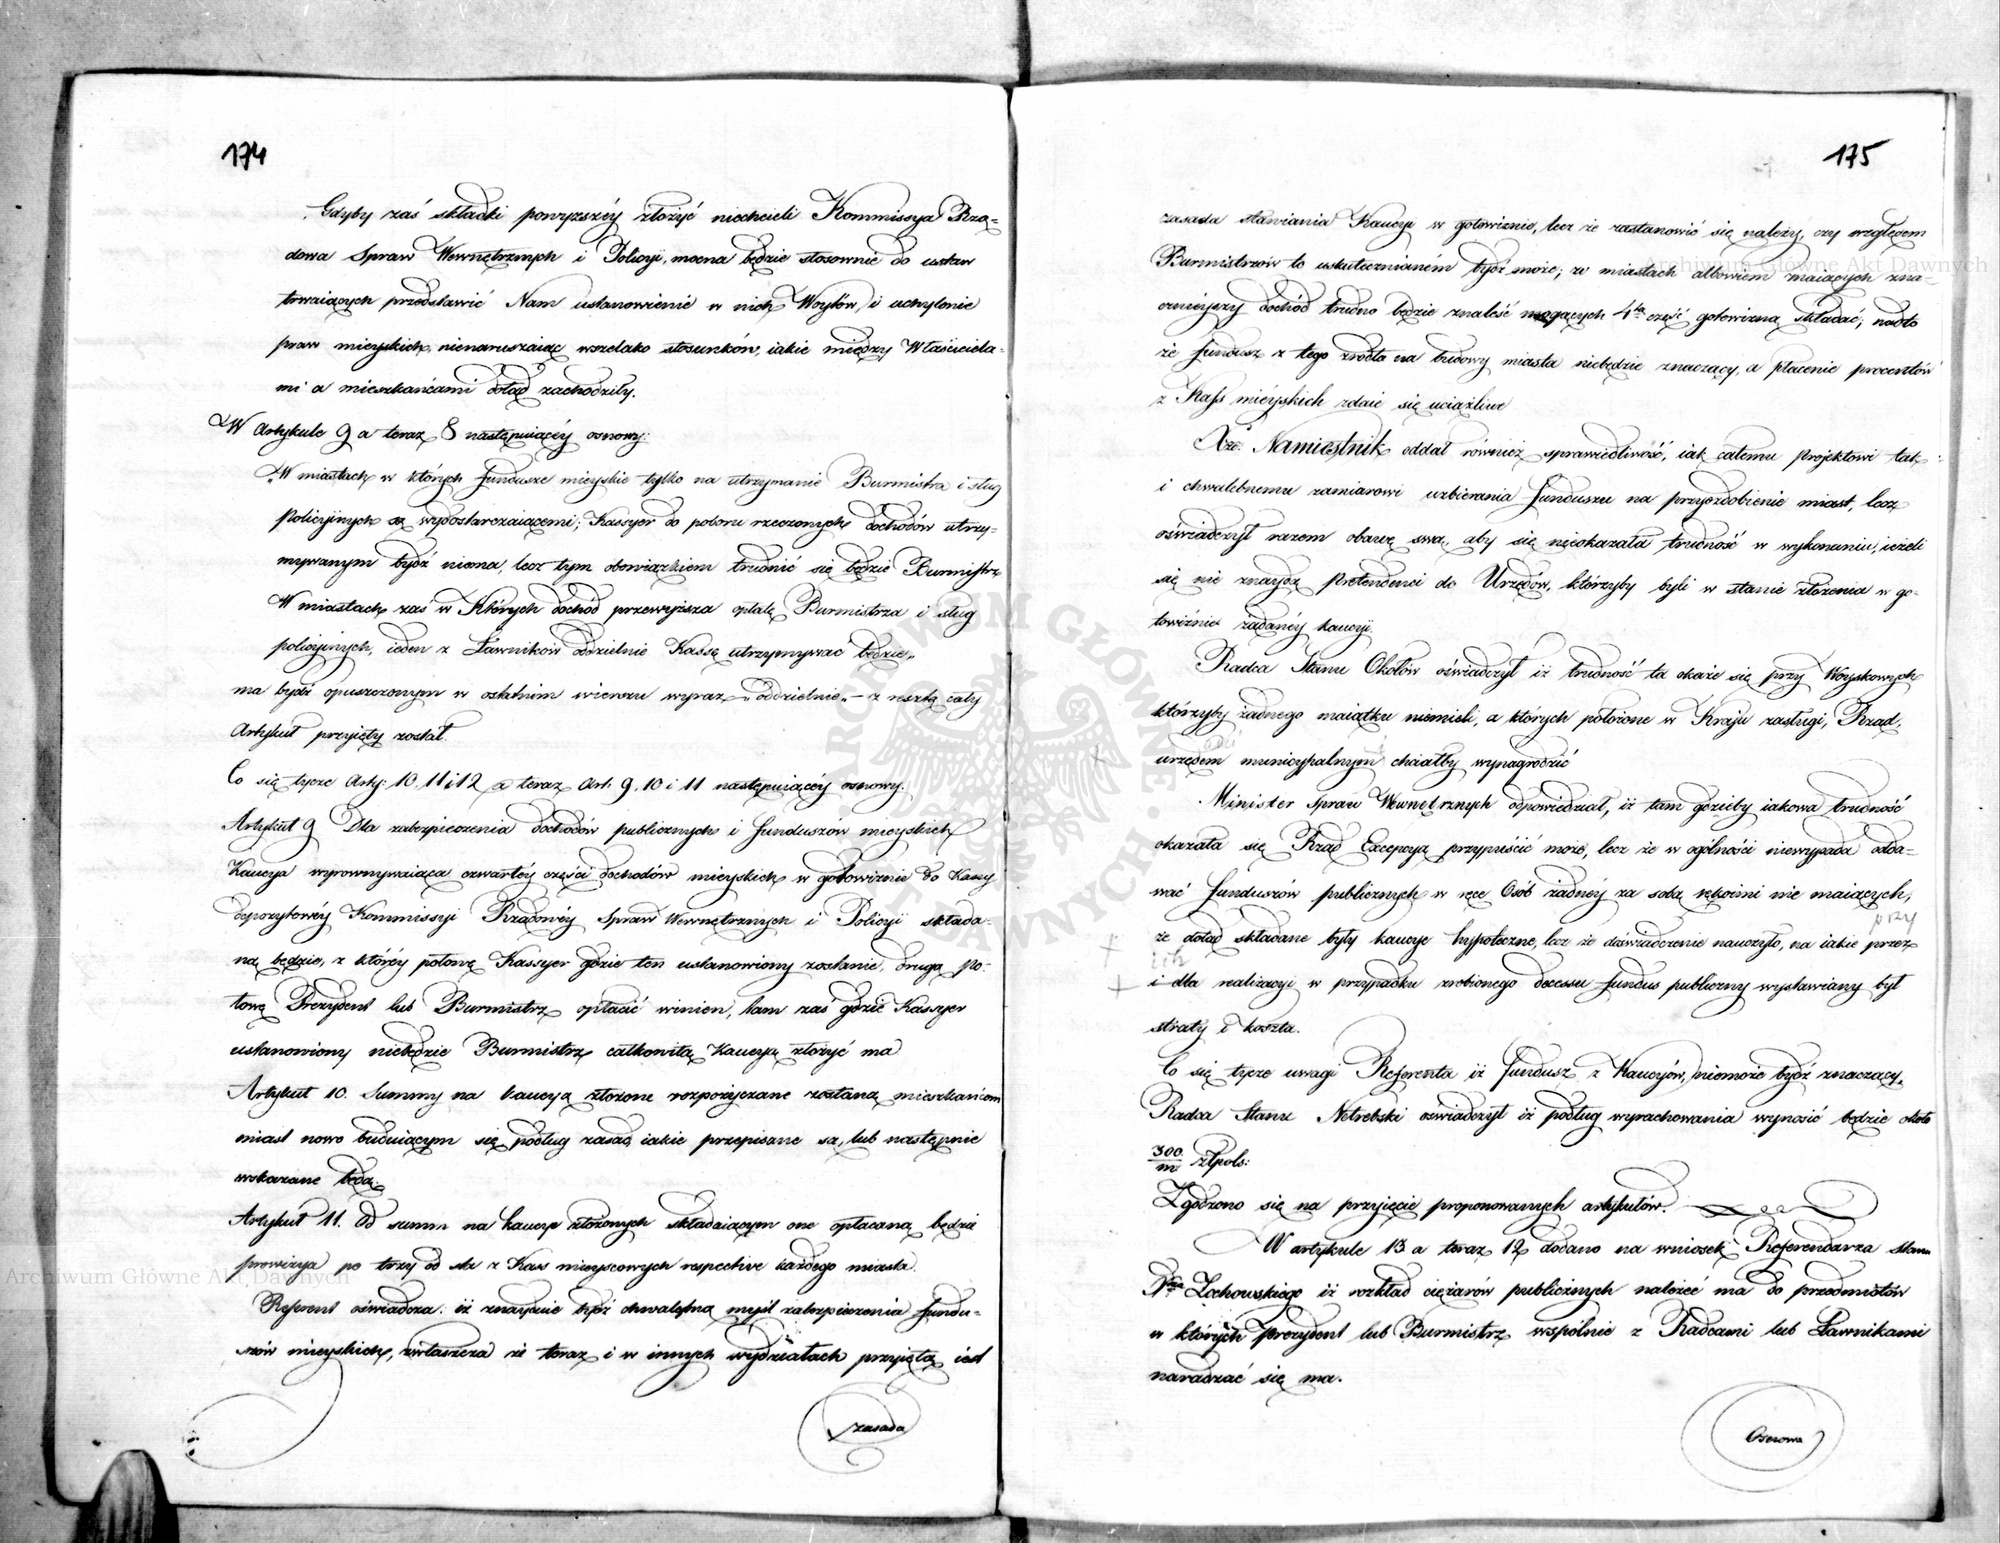 174
Gdyby zaś składki powyższéy złożyć niechcieli Kommissya Rzą-
dowa Spraw Wewnętrznych i Policyi, mocna będzie stosownie do ustaw
trwaiących przedstawić Nam ustanowienie w nich Woytów, i uchylenie
praw mieyskich, nienaruszaiąc wszelako stosunków, iakie między Właściciela-
mi a mieszkańcami dotąd zachodziły.
W Artykule 9 a teraz 8 następuiącéy osnowy:
„W miastach w których fundusze mieyskie tylko na utrzymanie Burmistra i sług
Policyinych są wydostarczaiącemi; Kassyer do poboru rzeczonych dochodów utrzy-
mywanym bydź niema, lecz tym obowiązkiem trudnić się będzie Burmistrz
W miastach zaś w Których dochód przewyższa opłatę Burmistrza i sług
policyinych, ieden z Ławników oddzielnie Kassę utrzymywać będzie„
ma bydź opuszczonym w ostatnim wierszu wyraz „oddzielnie„ – z resztą cały
Artykuł przyięty został.
Co się tycze Arty: 10. 11 i 12 a teraz Art. 9, 10 i 11 następuiącéy osnowy.
Artykuł 9 Dla zabezpieczenia dochodów publicznych i funduszów mieyskich
Kaucya wyrownywaiąca czwartéy części dochodów mieyskich w gotowiznie do Kassy
depozytowéy Kommissyi Rządowéy Spraw Wewnętrznych i Policyi składa-
ną będzie, z któréy połowę Kassyer gdzie ten ustanowiony zostanie, drugą po-
łowę Prezydent lub Burmistrz opłacić winien, tam zaś gdzie Kassyer
ustanowiony niebędzie Burmistrz całkowitą Kaucyą złożyć ma
Artykuł 10. Summy na kaucyą złożone rozpożyczane zostaną mieszkańcom
miast nowo buduiącym się, podług zasad, iakie przepisane są, lub następnie
wskazane będą.
Artykuł 11. Od summ na kaucye złożonych składaiącym one opłacaną będzie
prowizya po trzy od sta z Kass mieyscowych respective każdego miasta.
Referent oświadcza: iż znayduie bydź chwalebną myśl zabezpieczenia fundu-
szów mieyskich, zwłaszcza że teraz i w innych wydziałach przyiętą iest
zasada
175
zasada stawiania Kaucyi w gotowiznie, lecz że zastanowić się należy, czy względem
Burmistrzów to uskutecznianém bydź może; w miastach albowiem maiących zna-
cznieyszy dochód trudno będzie znaleść mogących 4tą część gotowizną składać; nadto
że fundusz z tego zrodła na budowy miasta niebędzie znaczący, a płacenie procentów
z Kass mieyskich zdaie się uciążliwe
Xże Namiestnik oddał również sprawiedliwość, iak całemu projektowi tak
i chwalebnemu zamiarowi uzbierania funduszu na przyozdobienie miast, lecz
oświadczył razem obawę swą, aby się nieokazała trudność w wykonaniu, ieżeli
się nie znaydą pretendenci do Urzędów, którzyby byli w stanie złożenia w go-
towiznie żądanéy kaucyi.
Radca Stanu Okołów oświadczył iż trudność ta okaże się przy Woyskowych
którzyby żadnego maiątku niemieli, a których położone w Kraju zasługi, Rząd,
urzędem municypalnym chciałby wynagrodzić
Minister Spraw Wewnętrznych odpowiedział, iż tam gdzieby iakowa trudność
okazała się Rząd Excepcyą przypuścić może, lecz że w ogólności niewypada odda-
wać funduszów publicznych w ręce Osób żadnéy za sobą rękoimi nie maiących,
przy
że dotąd składane były kaucye hypoteczne, lecz że doświadczenie nauczyło, na iakie przez
ich
i dla realizacyi w przypadku zrobionego decessu fundus publiczny wystawiany był
straty i koszta.
Co się tycze uwagi Referenta iż fundusz z Kaucyów, niemoże bydź znaczący,
Radca Stanu Netrebski oświadczył iż podług wyrachowania wynosić będzie około
300/m złpols:
Zgodzono się na przyięcie proponowanych artykułów.
W artykule 13 a teraz 12 dodano na wniosek Referendarza Stanu
Nro Zochowskiego iż rozkład ciężarów publicznych należeć ma do przedmiotów
w których Prezydent lub Burmistrz wspólnie z Radcami lub Ławnikami
naradzać się ma.
Osnowa
Archiwum Główne Akt Dawnych
Archiwum Główne Akt Dawnych
ARCHIWUM GŁÓWNE AKT DAWNYCH